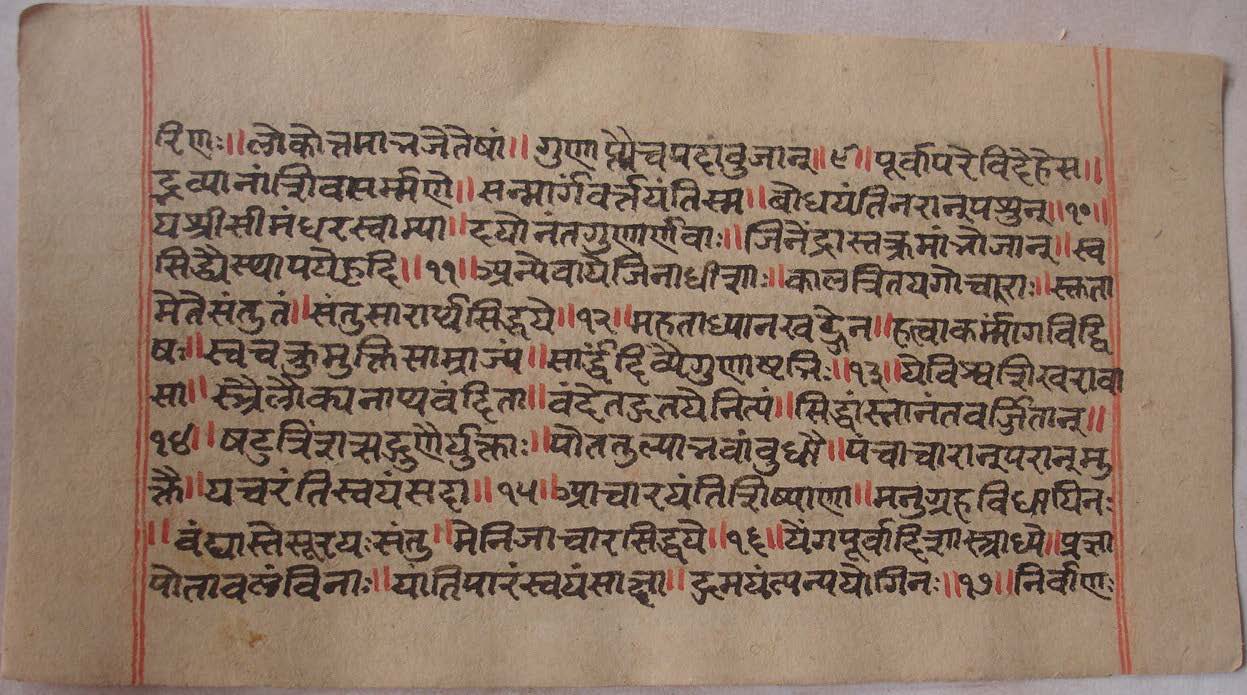 रिणः॥लोकोत्तमान्नजेतेषां॥गुणाप्त्यैचपदांवुजान्॥९॥पूर्वापरेविदेहेस॥
द्भव्यानांशिवासर्म्मणे॥सन्मार्गंवर्त्तयंतिस्म॥वोधयंतिनरान्पशुन्॥१०॥
यश्रीसीमंधरस्वाम्या॥दयोनंतगुणार्णवाः॥जिनेंद्रास्तत्क्रमांन्नोजान्॥स्व
सिद्ध्यैस्थापयेहृदि॥११॥ऽप्रन्येवायेजिनाधीशाः॥कालत्रितयगोचाराः॥स्कता
मेतेसंतुतं॥संतुसारार्प्यसिद्धये॥१२॥महताध्यानखड्गेन॥हत्वाकर्म्मागविद्वि
षः॥स्वचक्रुमुक्तिसाम्राज्यं॥सार्द्धंदिव्यैगुणाष्टन्निः॥१३॥येविश्वशिखरावा
सा॥स्त्रैलोक्यनाप्यवंदिता॥वंदेतद्गतयेनित्यं॥सिद्धांस्तानंतवर्ज्जितान्॥
१४॥षट्त्रिंशत्सद्गुणैर्युक्ताः॥पोततुल्यान्नवांवुधौ॥पंचाचारान्परान्मु
क्तै॥यचरंतिस्वयंसदा॥१५॥ऽप्राचारयंतिशिष्याणा॥मनुग्रहविधायिनः
॥वंद्यास्तेसूरयःसंतु॥मेनिजाचारसिद्धये॥१६॥येंगपूर्वादिशास्त्राध्ये॥प्रज्ञा
पोतावलंविनाः॥यांतिपारंस्वयंसाज्ञा॥द्गमयंत्पन्पयोगिनः॥१७॥निर्वाणः